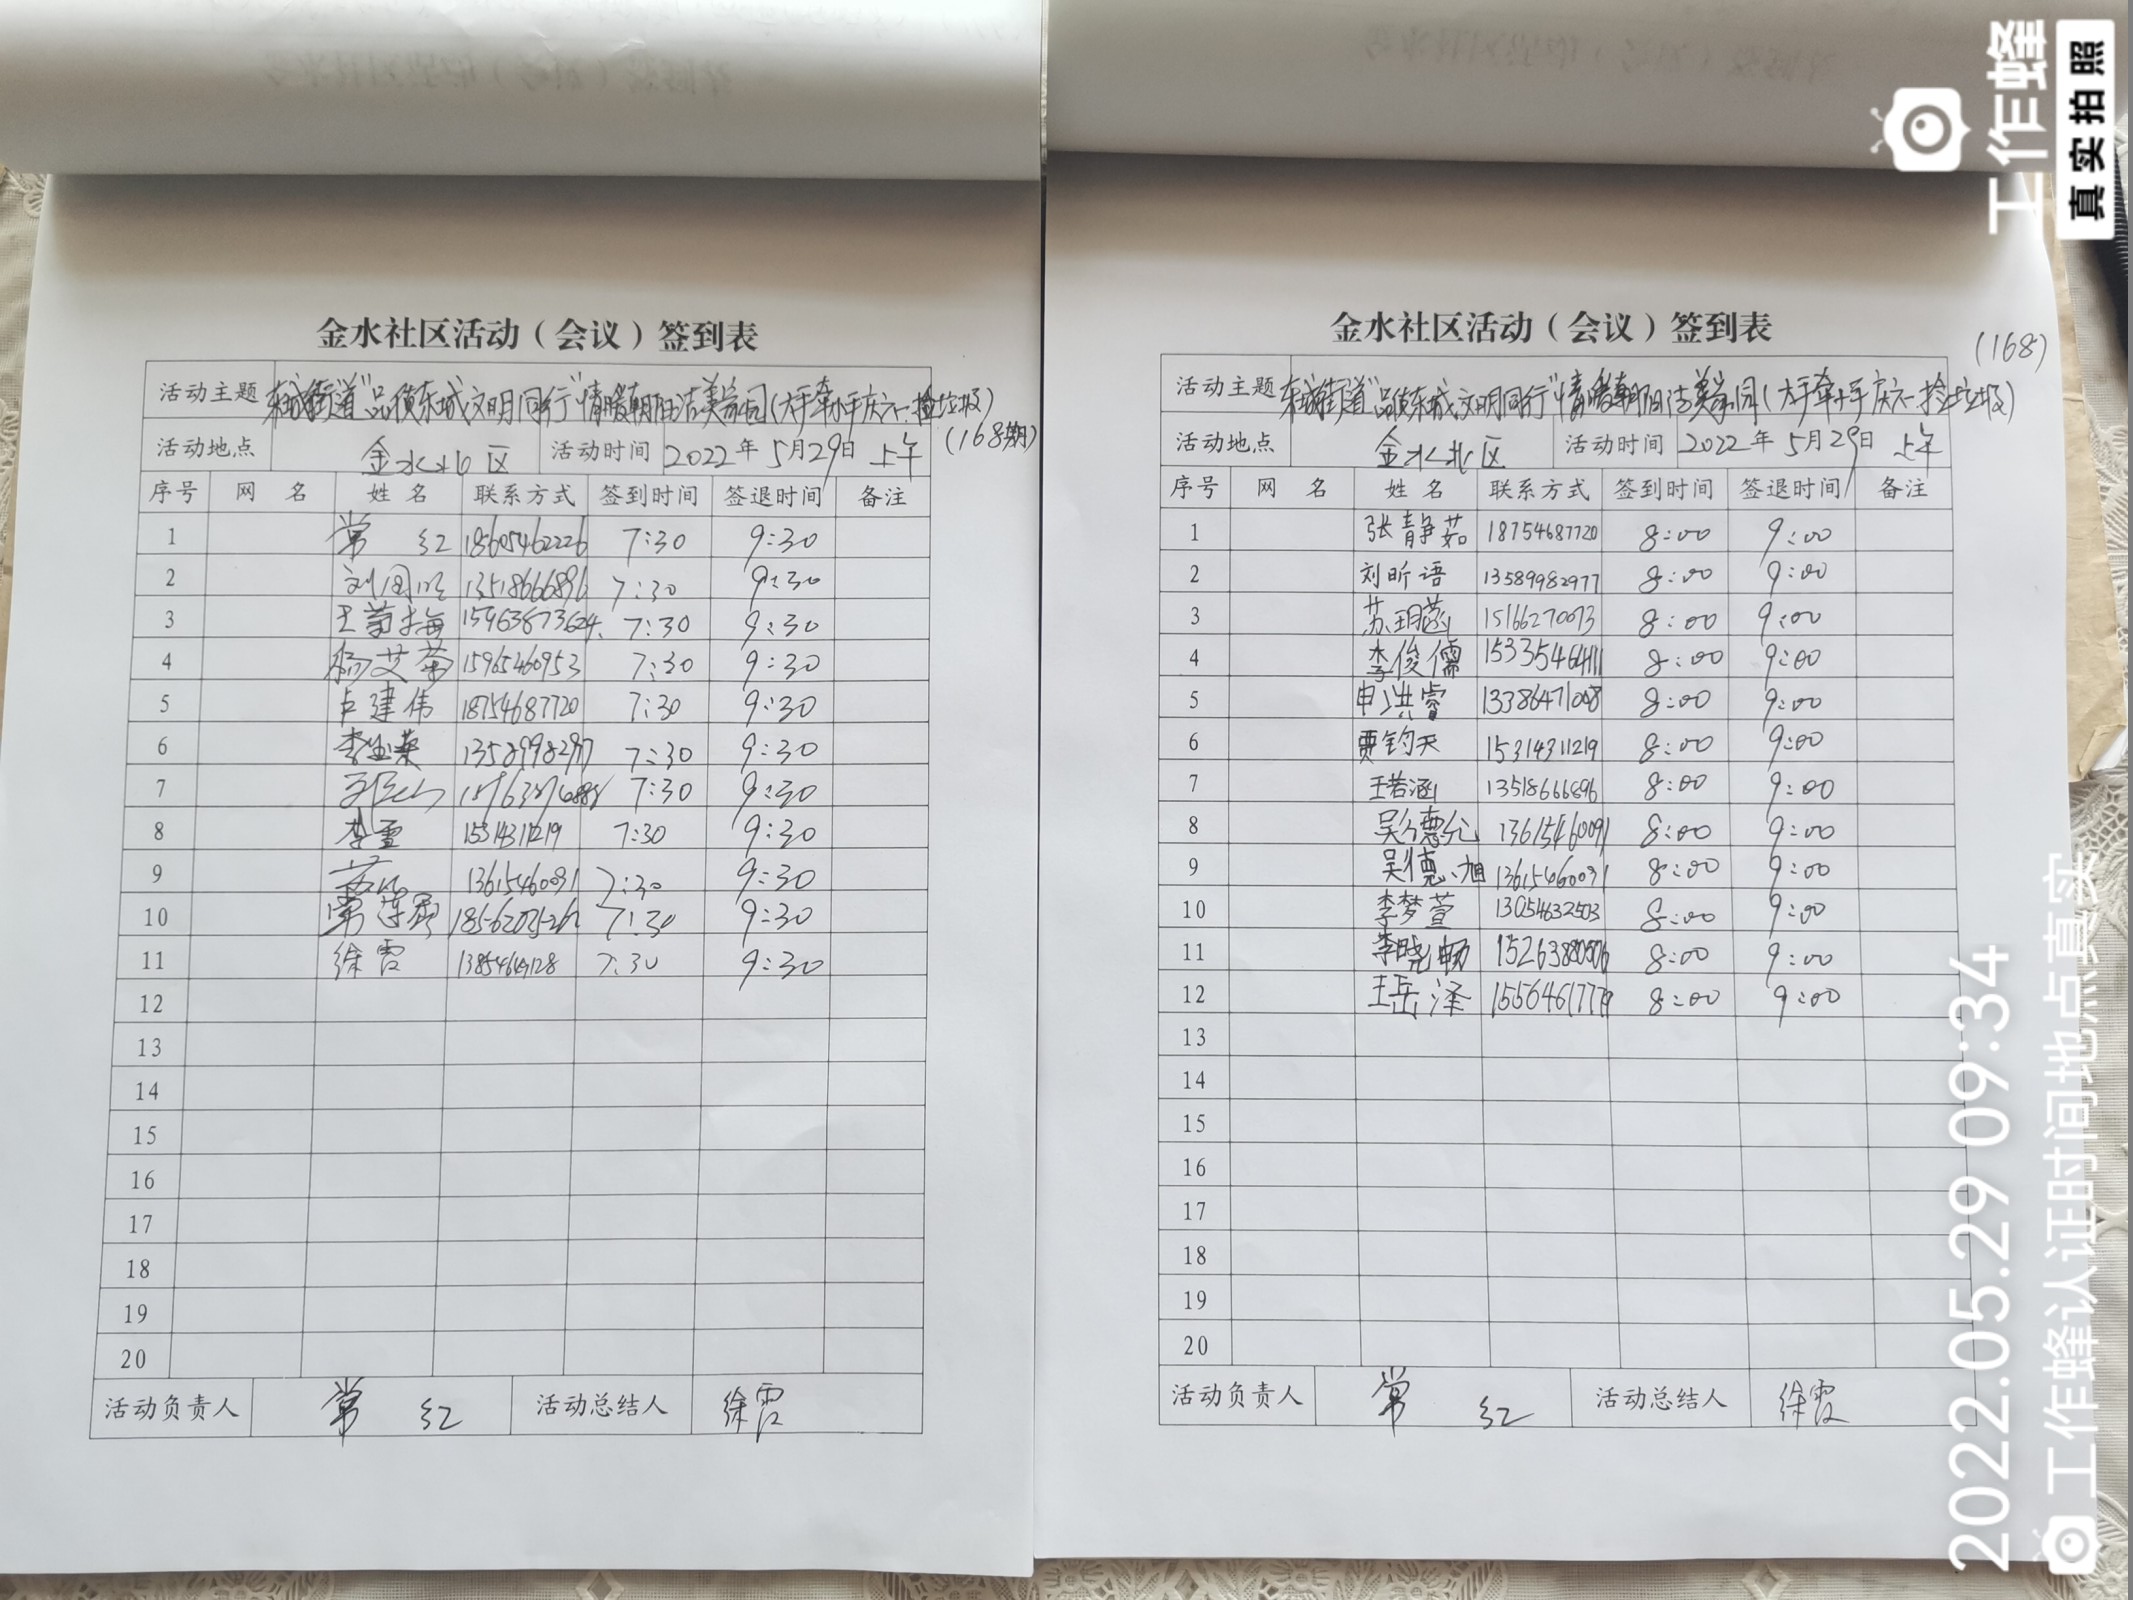 金水社区活动（会议）签到表
活动主题 东城街道"品质东城文明同行"情暖朝阳洁美家园(大手牵小手庆六一捡垃圾)
(168期)
活动地点 金水北区 活动时间 2022年5月29日 上午
序号 网 名 姓 名 联系方式 签到时间 签退时间 备注
1 常 红 18605462226 7:30 9:30
2 13518666896 7:30 9:30
3 王菊梅 15963873624 7:30 9:30
4 杨艾荣 15965460953 7:30 9:30
5 卢建伟 18754687720 7:30 9:30
6 7:30 9:30
7 7:30 9:30
8 李雪 15314311219 7:30 9:30
9 13615460091 7:30 9:30
10 7:30 9:30
11 徐霞 7:30 9:30
12
13
14
15
16
17
18
19
20
活动负责人 常 红 活动总结人 徐霞
金水社区活动（会议）签到表
(168)
活动主题 东城街道"品质东城文明同行"情暖朝阳洁美家园(大手牵小手庆六一捡垃圾)
活动地点 金水北区 活动时间 2022年5月29日 上午
序号 网 名 姓 名 联系方式 签到时间 签退时间 备注
1 张静茹 18754687720 8:00 9:00
2 刘昕语 13589982977 8:00 9:00
3 苏玥菡 15166270073 8:00 9:00
4 李俊儒 15335464111 8:00 9:00
5 申洪睿 13386471008 8:00 9:00
6 贾钧天 15314311219 8:00 9:00
7 王若涵 13518666896 8:00 9:00
8 吴德允 13615460091 8:00 9:00
9 吴德旭 13615460091 8:00 9:00
10 李梦萱 13054632503 8:00 9:00
11 李晓畅 15263880506 8:00 9:00
12 王岳泽 15564617779 8:00 9:00
13
14
15
16
17
18
19
20
活动负责人 常 红 活动总结人 徐霞
工作蜂
真实拍照
2022.05.29 09:34
工作蜂认证时间地点真实